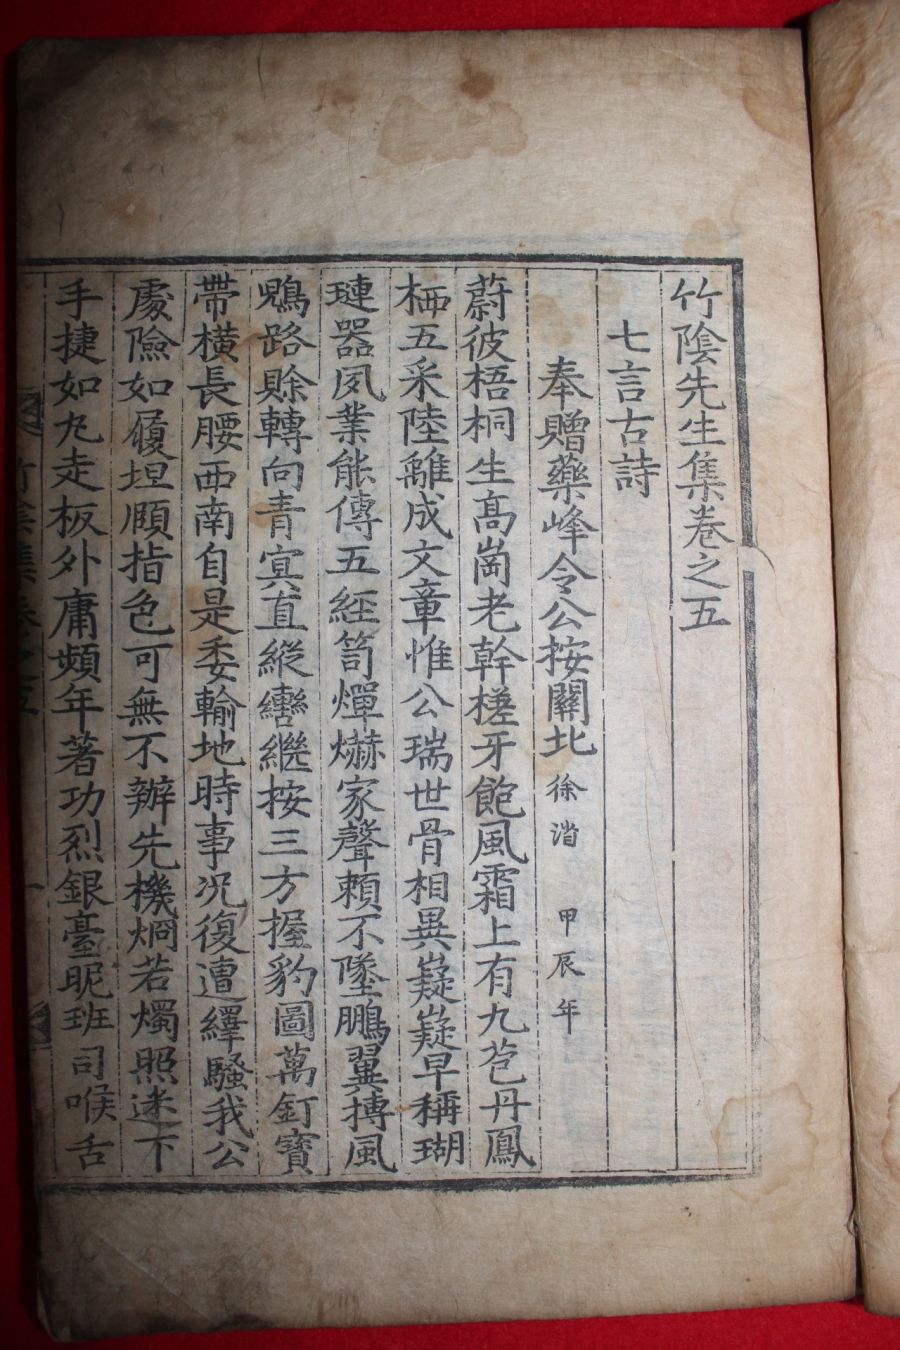 竹陰先生集卷之五
七言古詩
奉贈藥峰令公按關北 徐渻 甲辰年
蔚彼梧桐生高崗老幹槎牙飽風霜上有九苞丹鳳
栖五采陸離成文章惟公瑞世骨相異嶷嶷早稱瑚
璉器夙業能傳五經笥燀爀家聲賴不墜鵬翼摶風
鵾路賒轉向青冥直縱轡繼按三方握豹圖萬釘寶
帶橫長腰西南自是委輸地時事况復遭繹騷我公
處險如履坦頤指色可無不辦先機烱若燭照迷下
手捷如丸走板外庸頻年著功烈銀臺昵班司喉舌
竹陰集卷之五 一